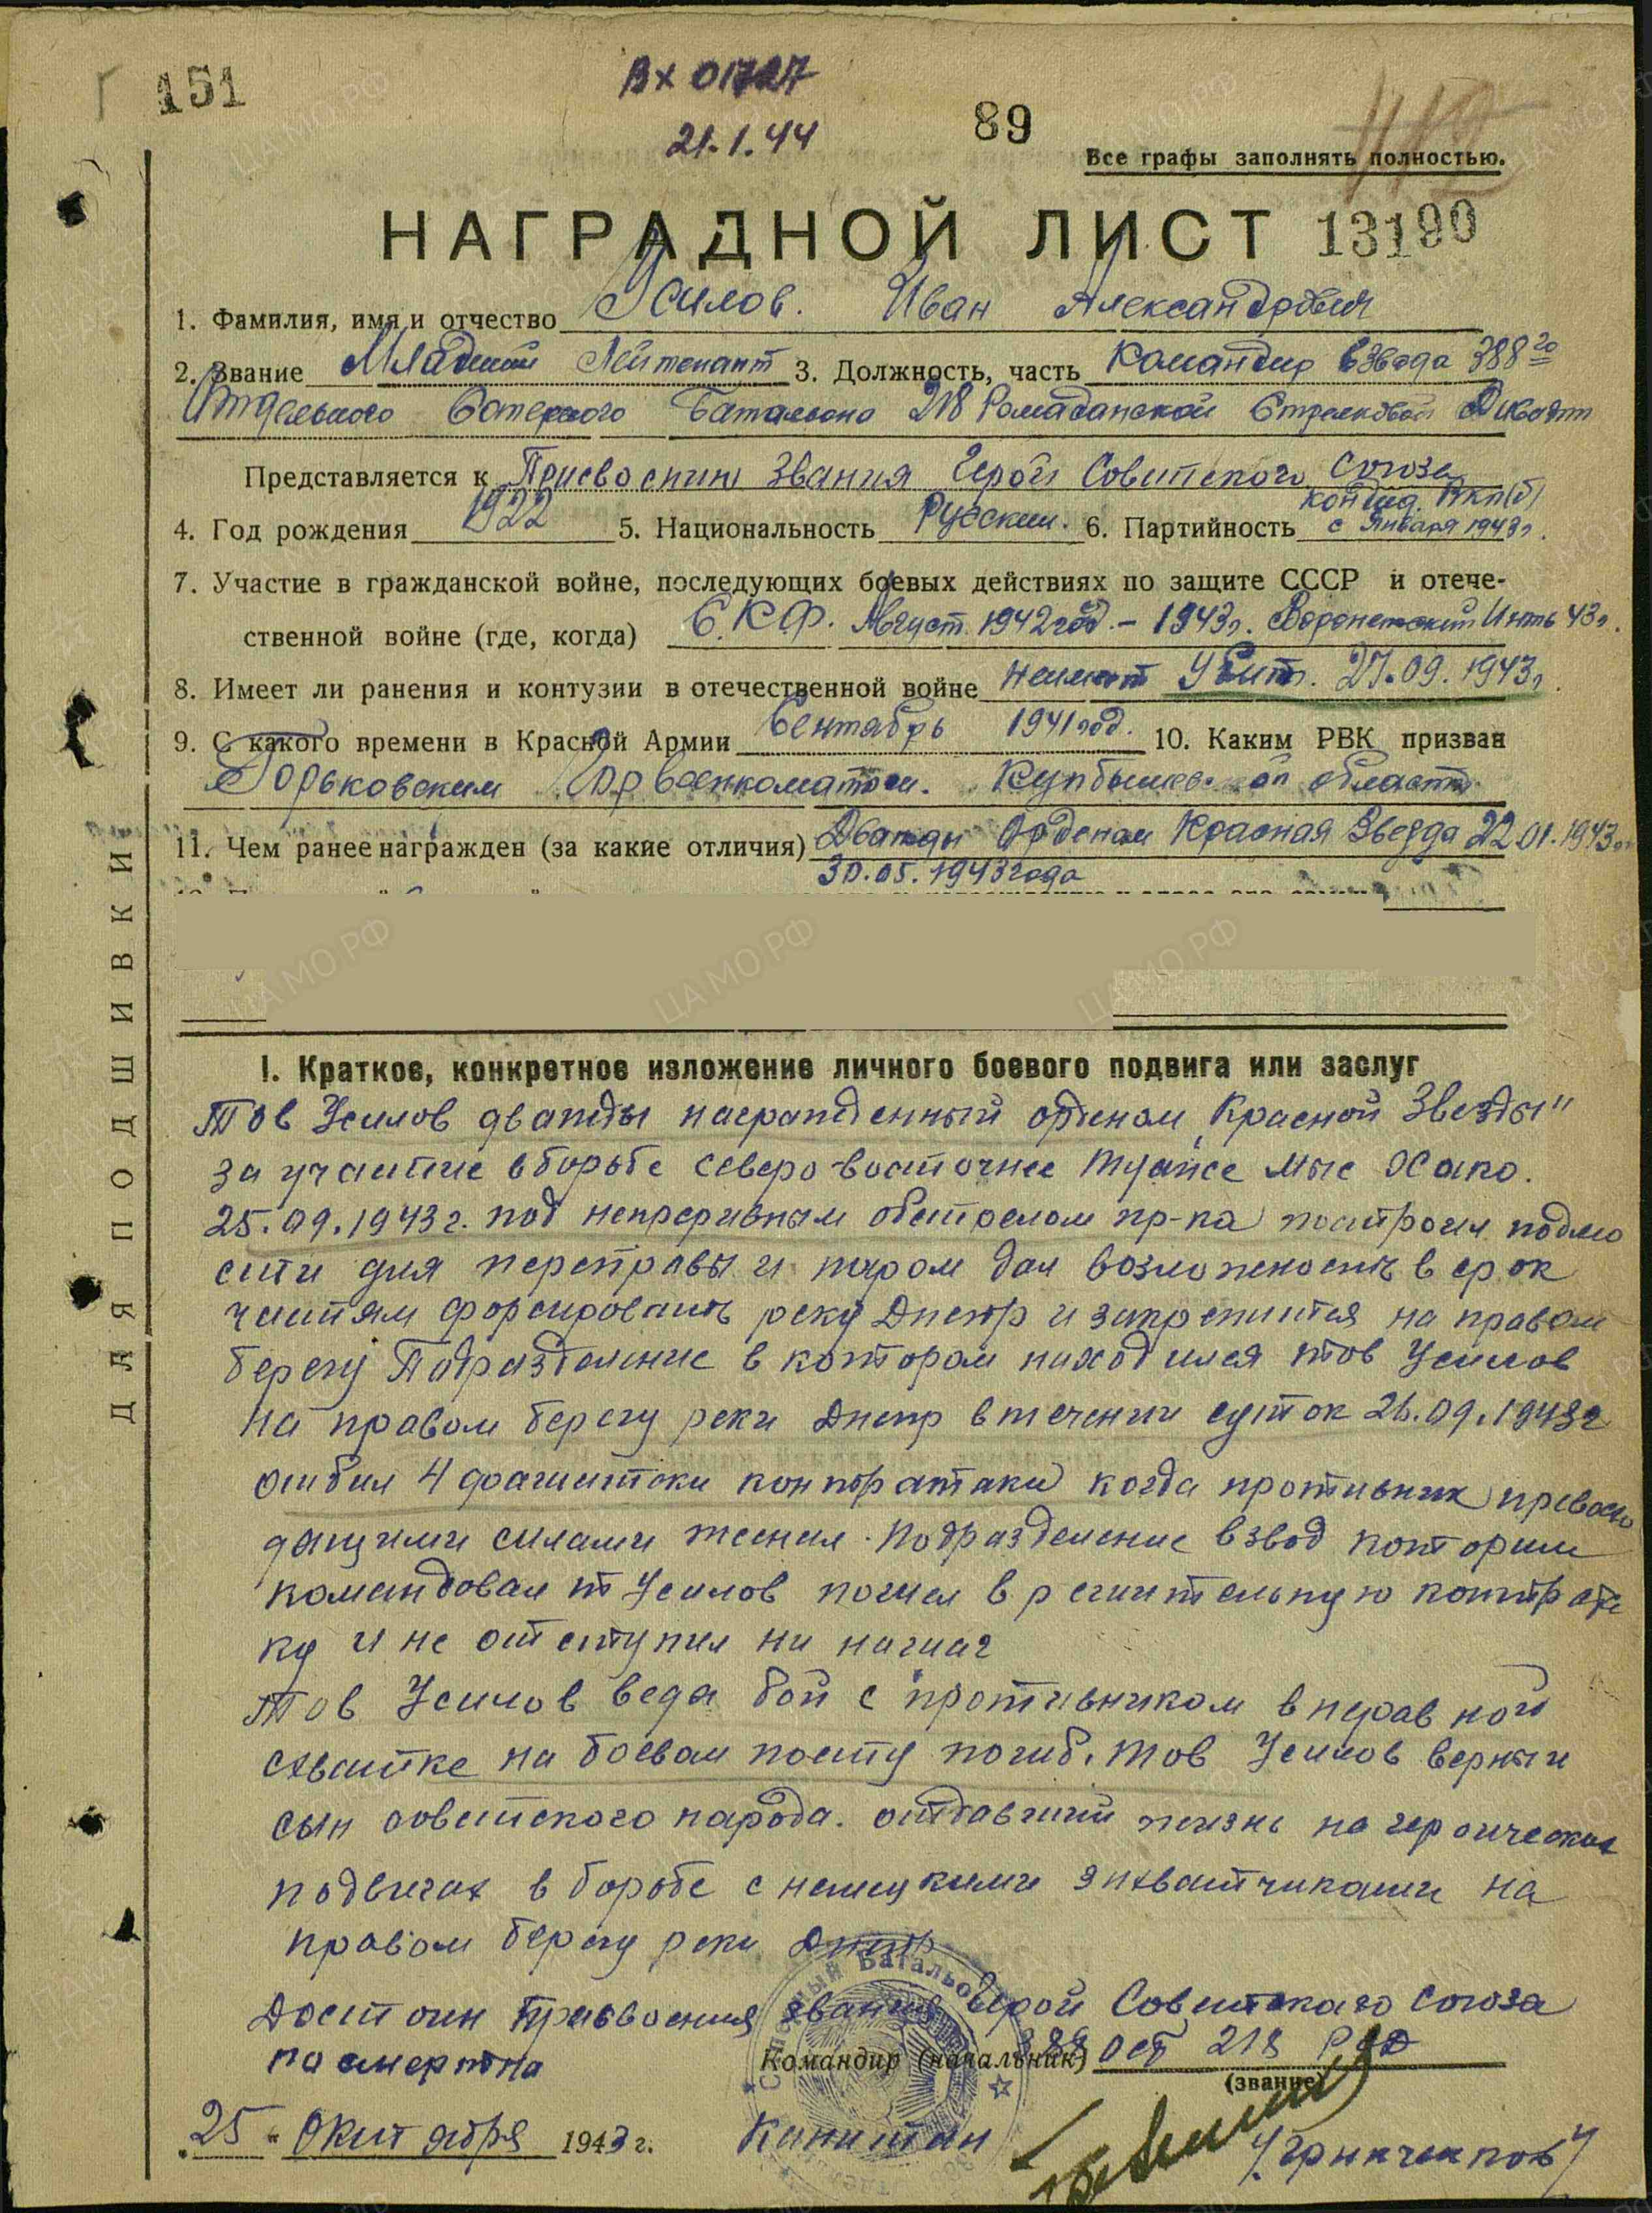 151
Вх 01727
21.1.44
89
112
Все графы заполнять полностью.
НАГРАДНОЙ ЛИСТ 13190
1. Фамилия, имя и отчество Усилов. Иван Александрович
2. Звание Младший Лейтенант 3. Должность, часть Командир взвода 388го
Отдельного Саперного Батальона 218 Ромаданской Стрелковой Дивизии
Представляется к Присвоению Звания Герой Советского Союза
4. Год рождения 1922 5. Национальность Русский. 6. Партийность Кондид. ВКП(б) с Января 1943г.
7. Участие в гражданской войне, последующих боевых действиях по защите СССР и отече-
ственной войне (где, когда) С.К.Ф. Август 1942год. – 1943г. Воронежский 43г.
8. Имеет ли ранения и контузии в отечественной войне Убит. 27.09.1943г.
9. С какого времени в Красной Армии Сентябрь 1941год. 10. Каким РВК призван
Горьковским Горвоенкоматом. Куйбышевской области
11. Чем ранее награжден (за какие отличия) Дважды Орденом Красная Звезда 22.01.1943г
30.05.1943года
ДЛЯ ПОДШИВКИ
I. Краткое, конкретное изложение личного боевого подвига или заслуг
Тов Усилов дважды награжденный орденом „Красной Звезды"
за участие в борьбе северо-восточнее Туапсе Мыс Хако.
25.09.1943г. под непрерывным обстрелом пр-ка построил подмо
сти для переправы и паром дал возможность в срок
частям форсировать реку Днепр и закрепится на правом
берегу Подразделение в котором находился тов Усилов
на правом берегу реки Днепр в течении суток 26.09.1943г
отбил 4 контратаки когда противник превосхо
дящими силами теснил подразделение взвод которым
командовал т Усилов пошел в решительную контрата
ку и не отступил ни на шаг
Тов Усилов ведя бой с противником в неравной
схватке на боевом посту погиб. Тов Усилов верный
сын советского народа. отдавший жизнь на героических
подвигах в борьбе с немецкими захватчиками на
правом берегу реки Днепр
Достоин Присвоения звания Герой Советского Союза
посмертна
Командир (начальник) 388 ОСБ 218 РСД
(звание)
„25" Октября 1943 г. Капитан